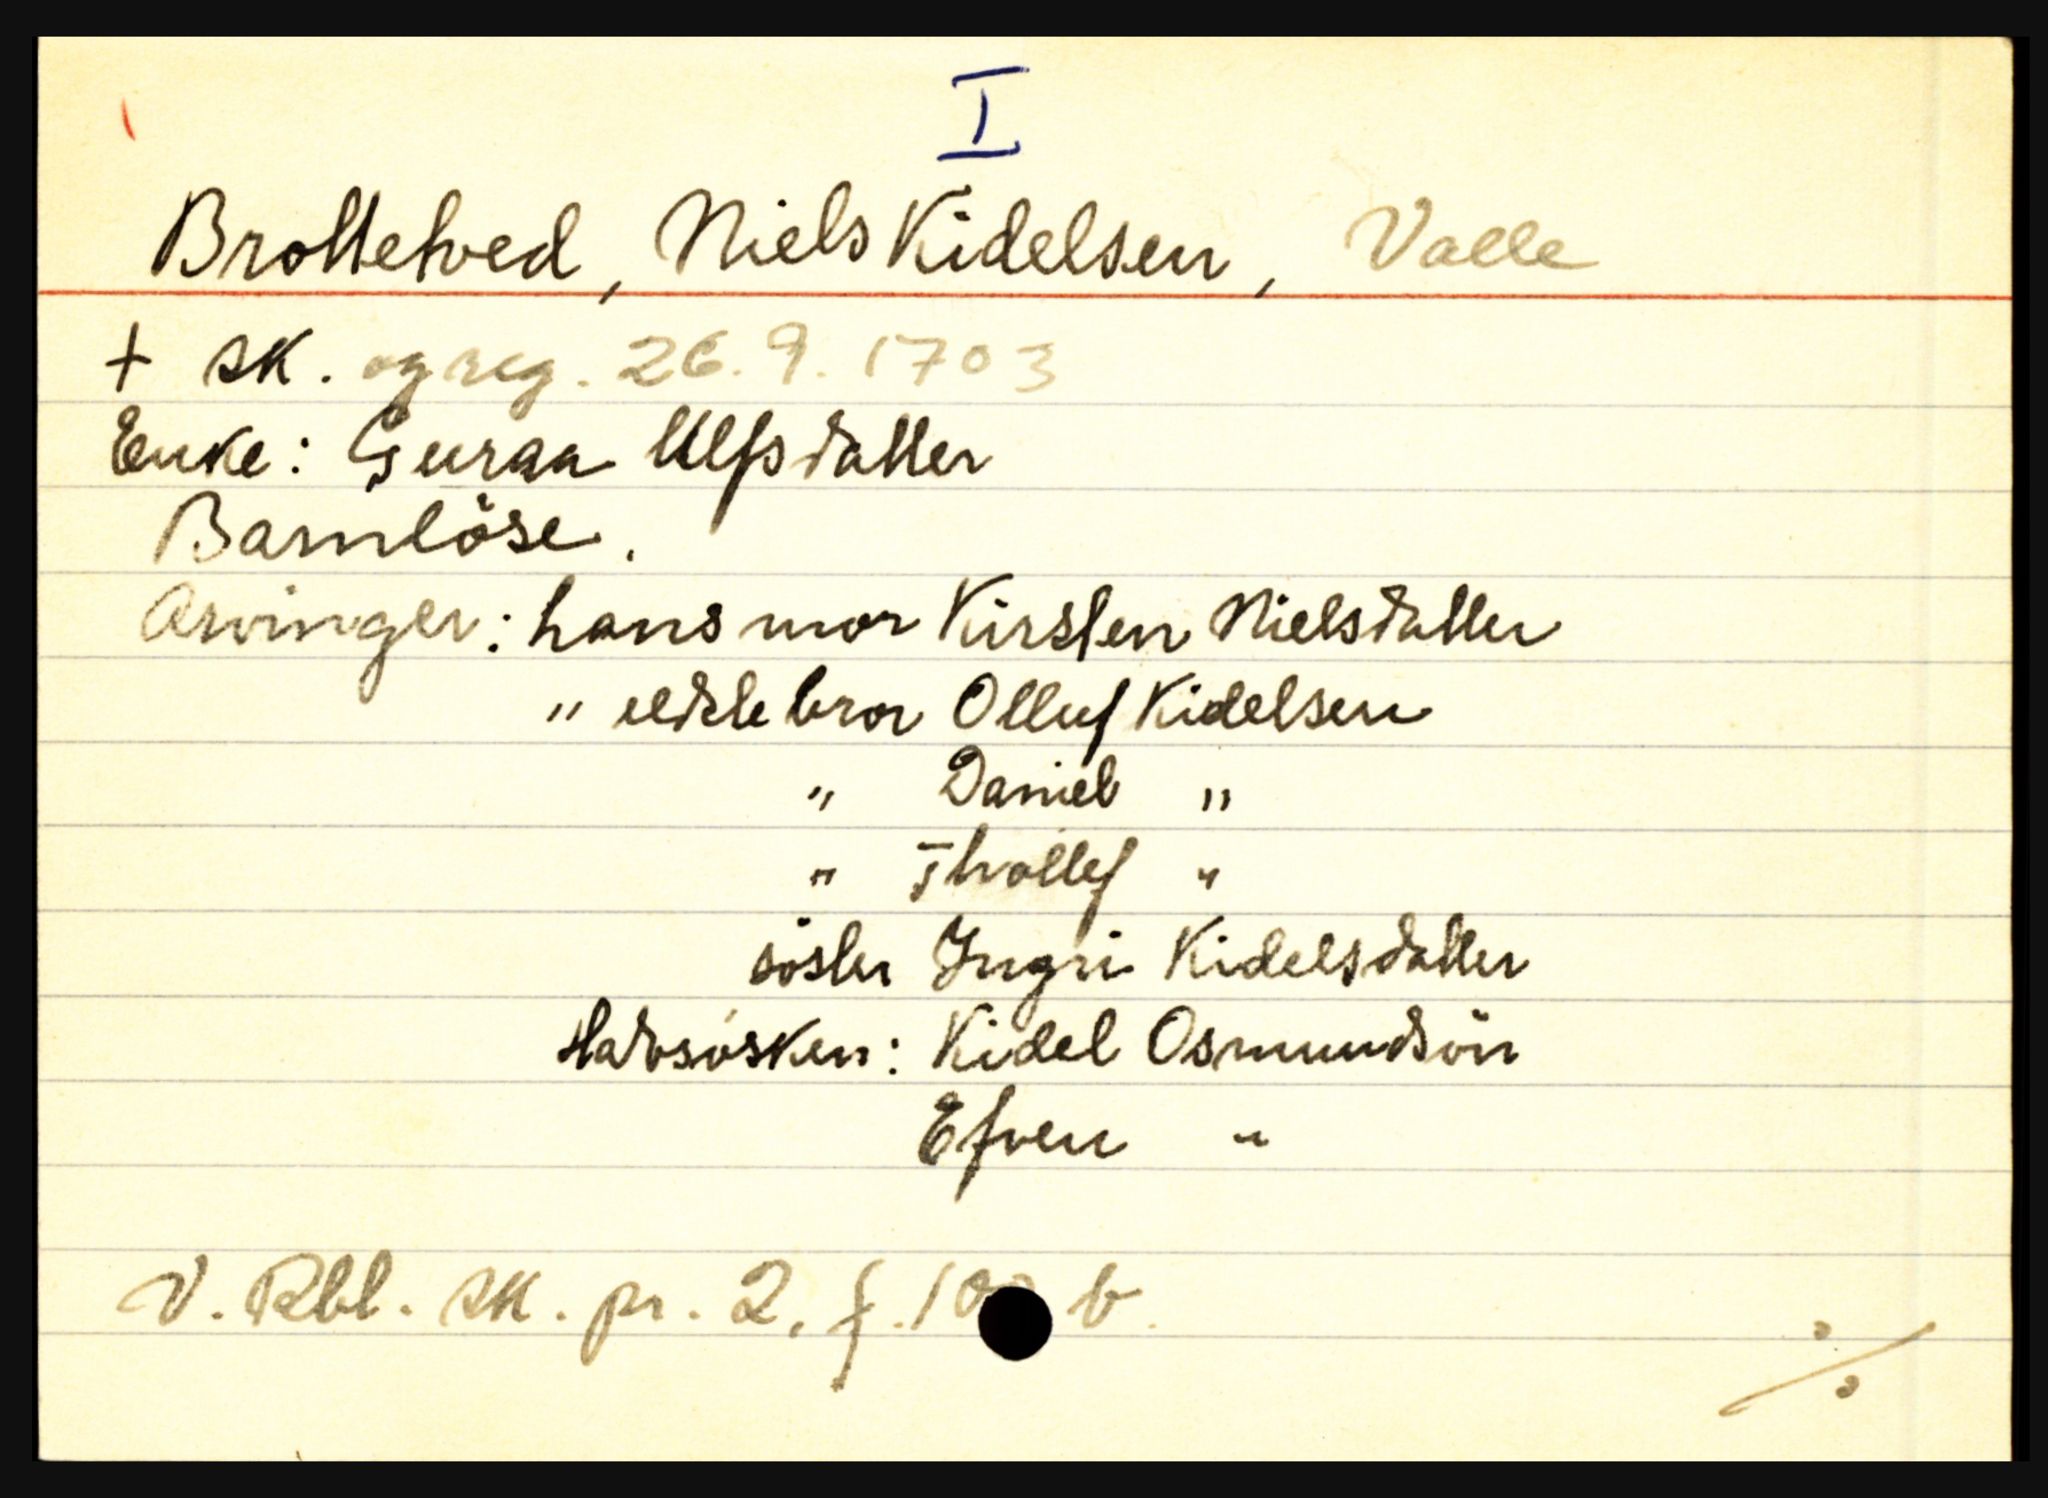 I
Brottetved, Niels Kidelsen, Valle
+ sk. og reg. 26.9.1703
Enke: Guraa Ulfsdatter
Barnlöse.
Arvinger: hans mor Kirsten Nielsdatter
" eldste bror Olluf Kidelsen
" Daniel "
" Thollef "
söster Ingri Kidelsdatter
Halvsösken: Kidel Osmundsön
Efven "
V. Rbl. sk. pr. 2, f. 10 b.
%